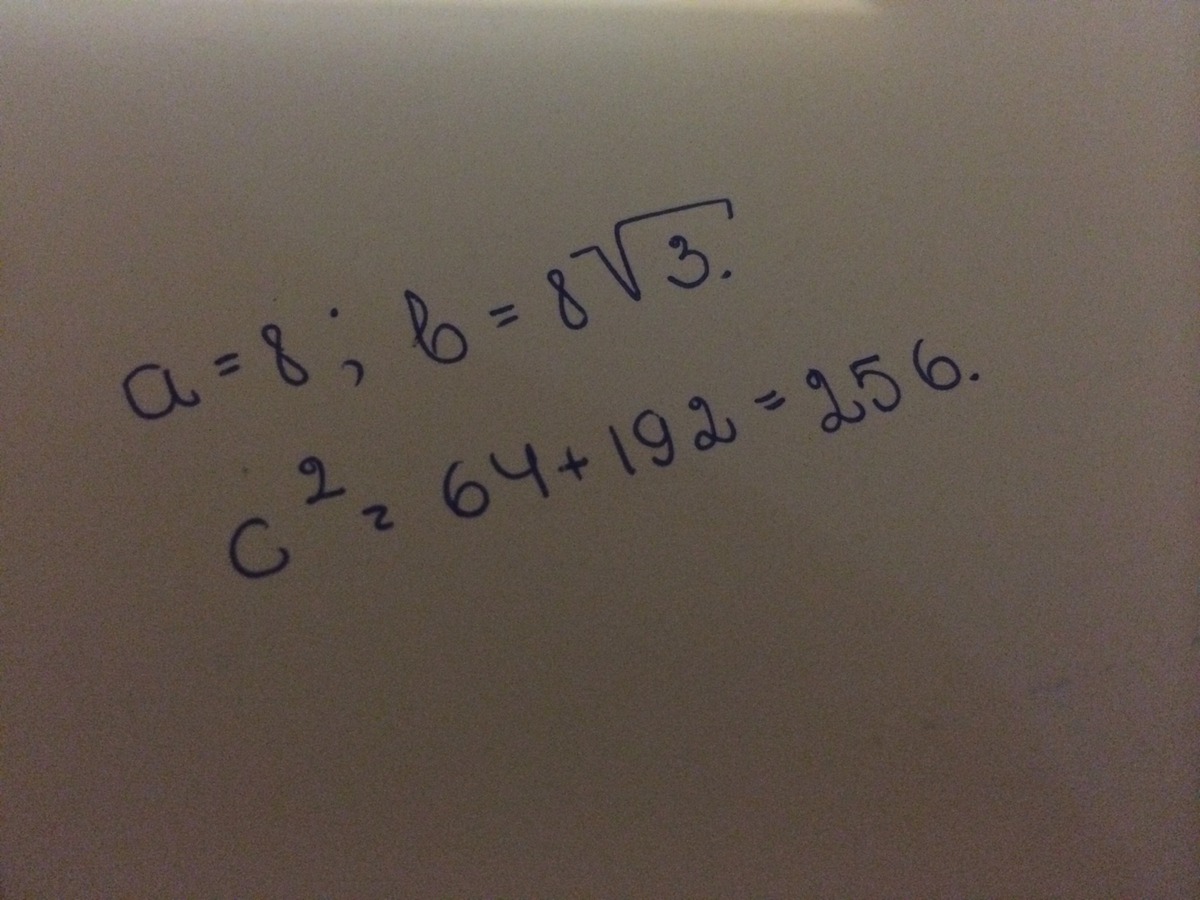 a = 8; b = 8√3.
c² = 64 + 192 = 256.